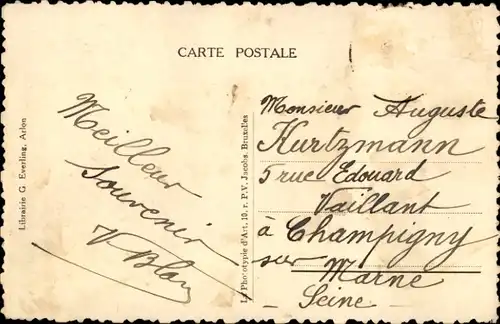 CARTE POSTALE
Librairie G. Everling, Arlon
Meilleur
Souvenir
V Blan
La Phototypie d'Art, 10, r. P. V. Jacobs, Bruxelles
Monsieur Auguste
Kurtzmann
5 rue Edouard
Vaillant
à Champigny
sur Marne
Seine